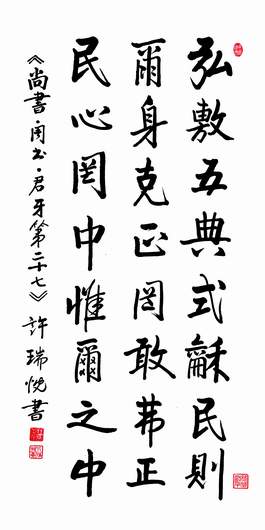 弘敷五典式龢民則
爾身克正罔敢弗正
民心罔中惟爾之中
《尚書·周书·君牙第二十七》許瑞悅書